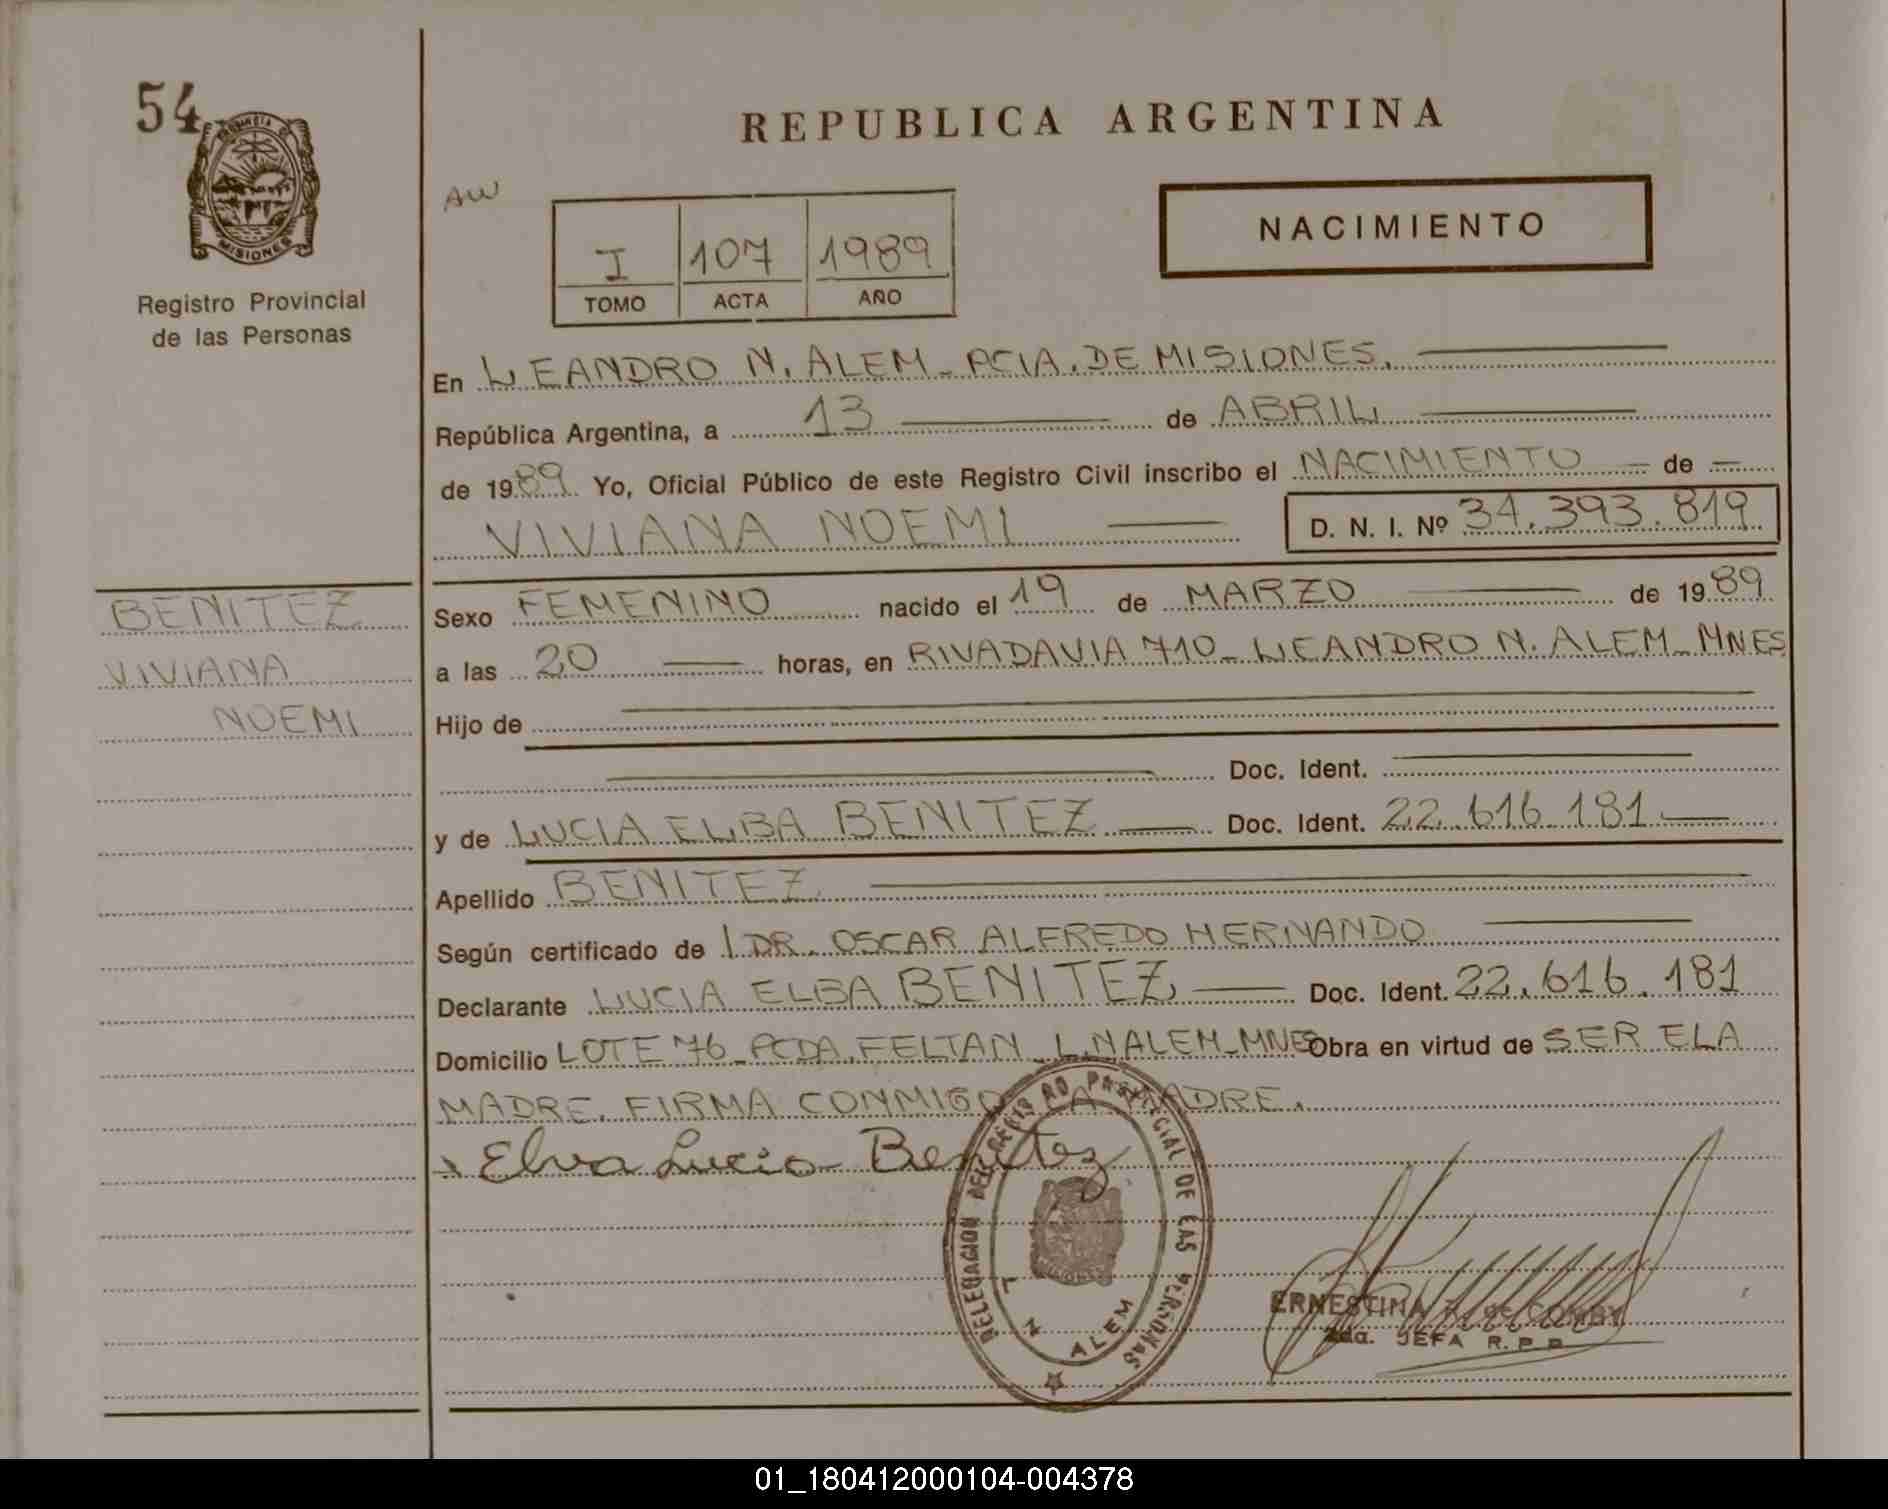 54
PROVINCIA DE
MISIONES
Registro Provincial
de las Personas
REPUBLICA ARGENTINA
AW
I 107 1989
TOMO ACTA AÑO
NACIMIENTO
En LEANDRO N. ALEM - PCIA. DE MISIONES.
República Argentina, a 13 de ABRIL
de 1989 Yo, Oficial Público de este Registro Civil inscribo el NACIMIENTO de
VIVIANA NOEMI D. N. I. Nº 34.393.819
BENITEZ
VIVIANA
NOEMI
Sexo FEMENINO nacido el 19 de MARZO de 1989
a las 20 horas, en RIVADAVIA 710 - LEANDRO N. ALEM - MNES
Hijo de
Doc. Ident.
y de LUCIA ELBA BENITEZ Doc. Ident. 22.616.181
Apellido BENITEZ
Según certificado de DR. OSCAR ALFREDO HERNANDO
Declarante LUCIA ELBA BENITEZ Doc. Ident. 22.616.181
Domicilio LOTE 76 - PCDA. FELTAN - L.N ALEM - MNES Obra en virtud de SER ELA
MADRE. FIRMA CONMIGO LA MADRE.
Elva Lucia Benitez
DELEGACION DEL REGISTRO PROVINCIAL DE LAS PERSONAS
L N ALEM
ERNESTINA
2da. JEFA R. P. P.
01_180412000104-004378